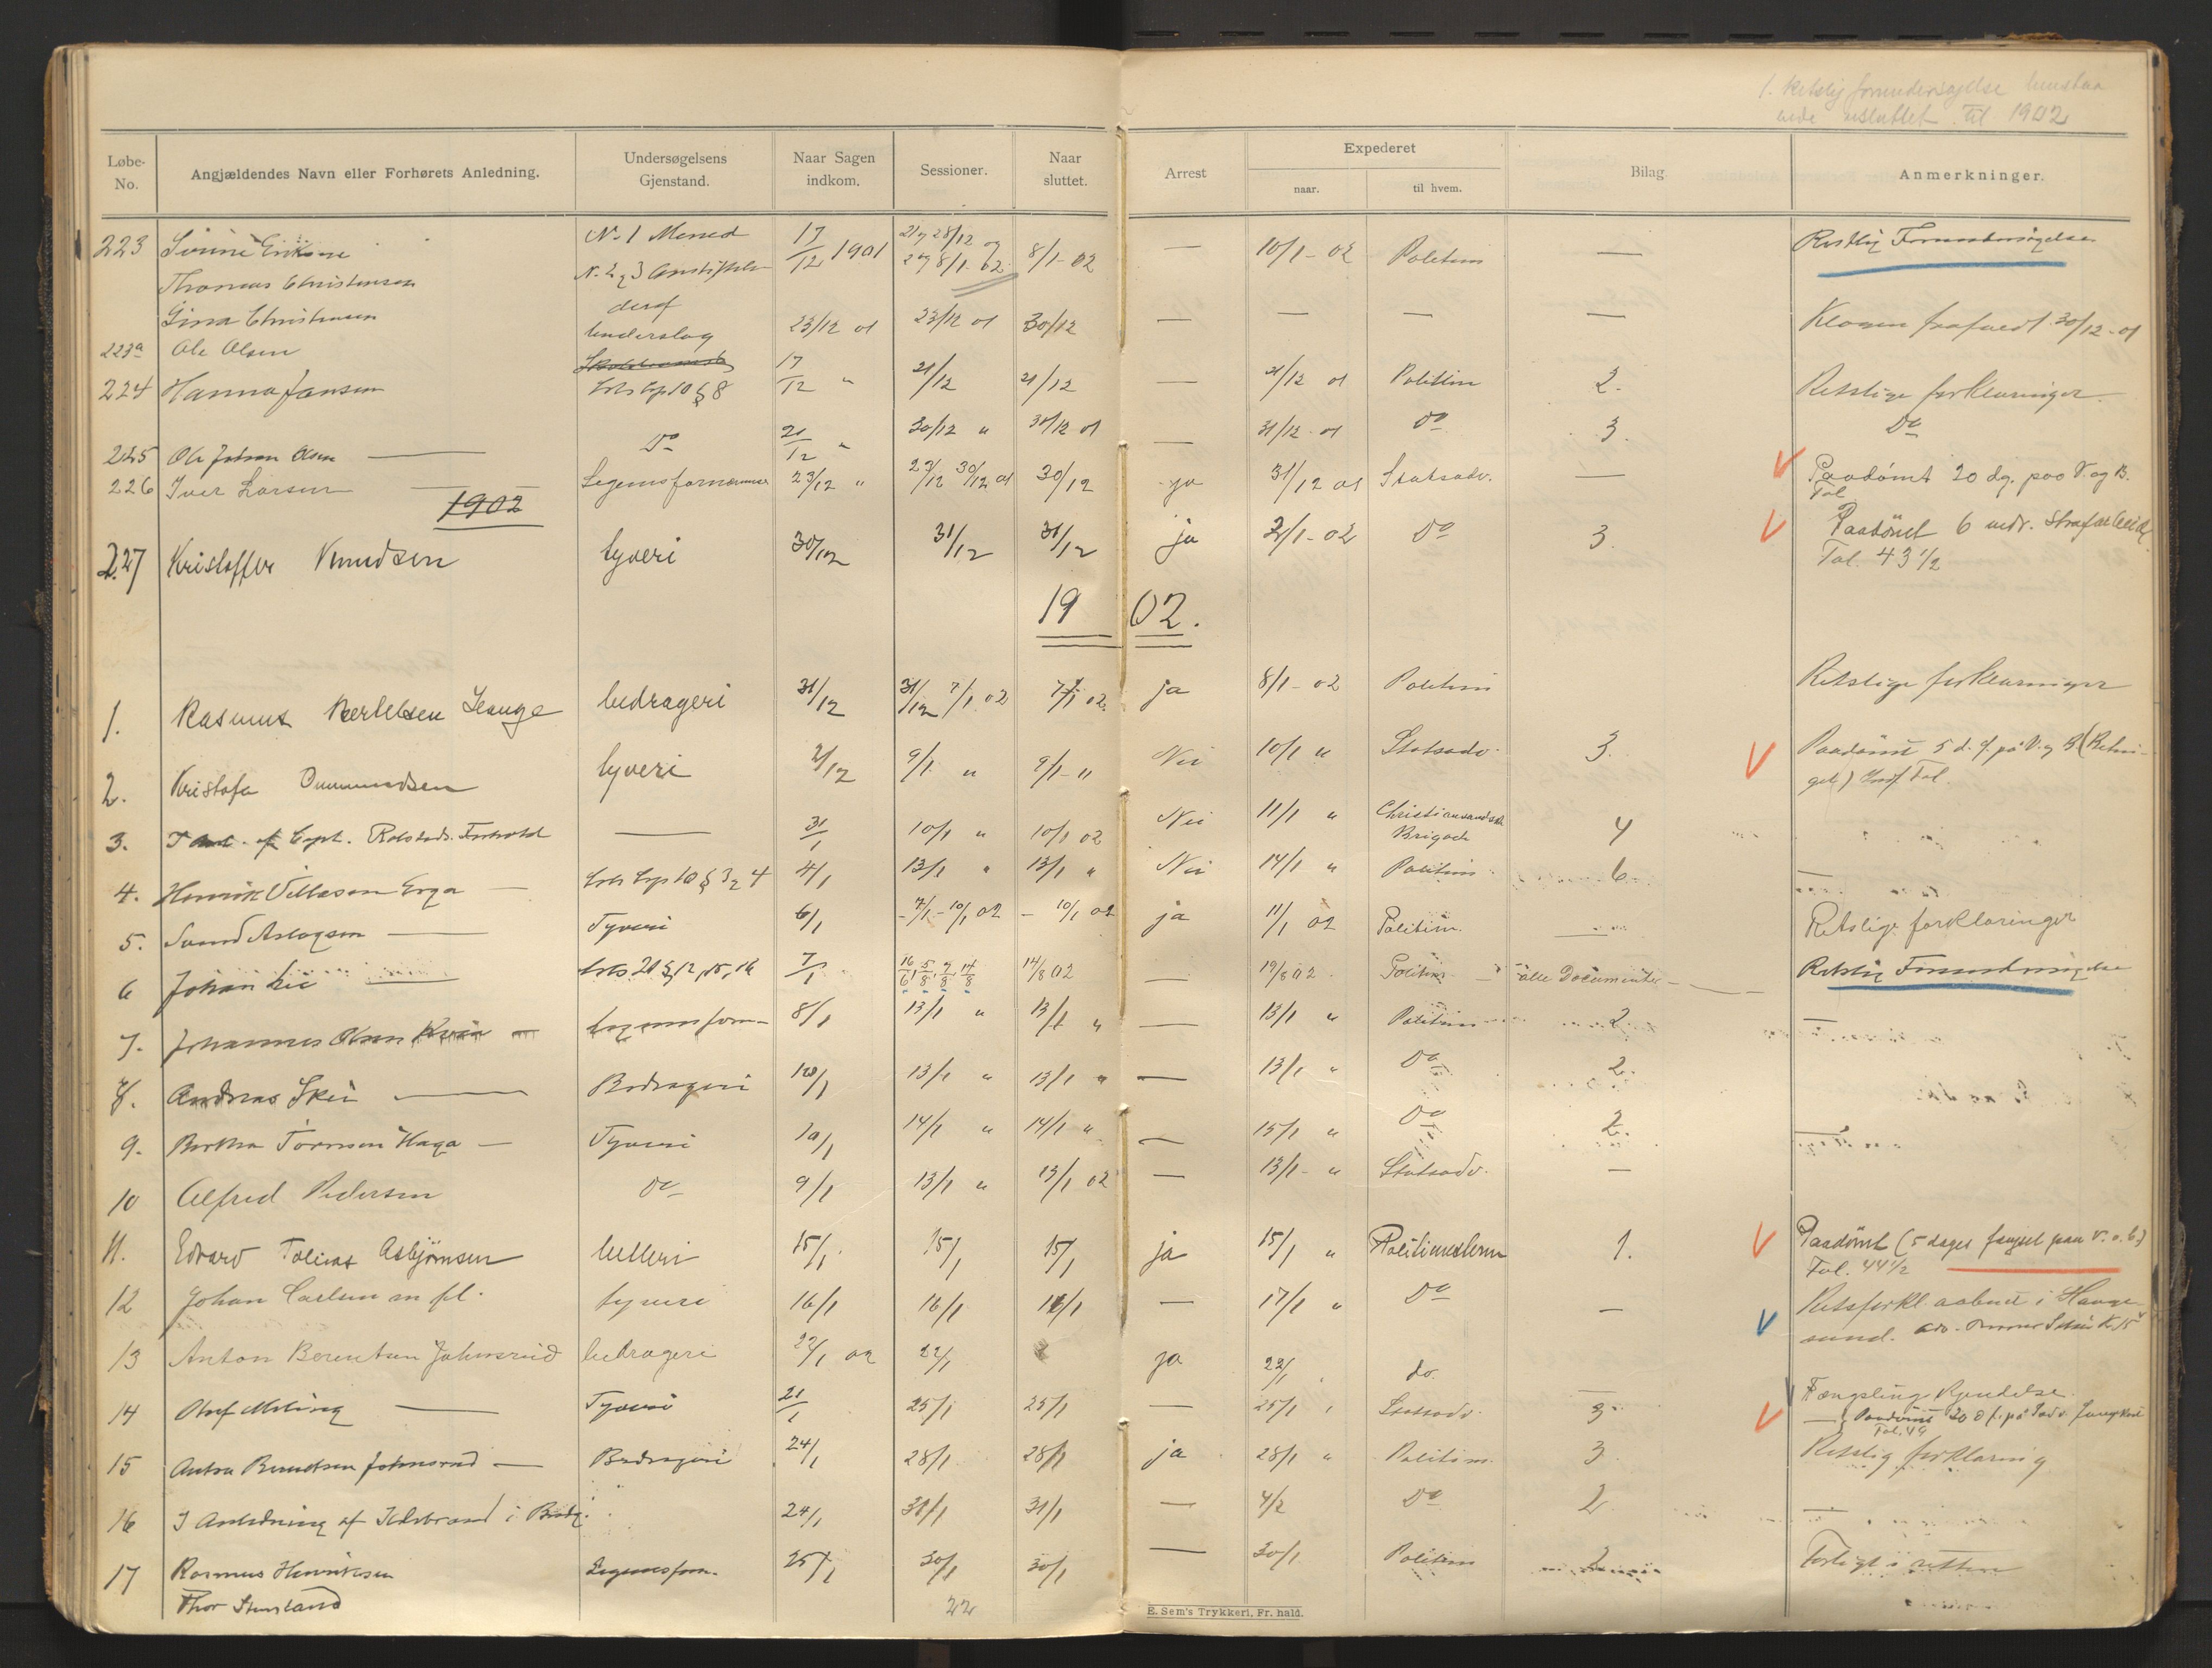 1. Retslig forundersøgelse henstaa
usluttet til 1902
Løbe-No. Angjældendes Navn eller Forhørets Anledning. Undersøgelsens Gjenstand. Naar Sagen indkom. Sessioner. Naar sluttet. Arrest Expederet naar. til hvem. Bilag. Anmerkninger.
223 Sirine Eriksen No 1 Mened 17/12 1901 21 og 28/12 og 8/1-02 — 10/1-02 Politim — Retslig Forundersøgelse
Thomas Christensen N. 2 og 3 Anstiftelse 2 og 8/1-02
Sina Christensen deraf
223a Ole Olsen Underslag 23/12 01 23/12 01 30/12 — — — — Klagen frafaldt 30/12-01
224 Hanna Jansen Lovs Cap 10 § 8 17/12 " 21/12 21/12 — 21/12 01 Politim 2. Retslige forklaringer
225 Ole Johan Olsen — Do 20/12 " 30/12 " 30/12 01 — 31/12 01 Do 3. Do
226 Iver Larsen — Legemsfornærmelse 23/12 " 27/12 30/12 01 30/12 ja 31/12 01 Statsadv. — Paadømt 20 dg. paa V. og B.
Fol
1902
227 Kristoffer Knudsen tyveri 30/12 31/12 31/12 ja 2/1-02 Do 3. Paadømt 6 mdr. Strafarbeide
Fol. 43 1/2
1902.
1. Rasmus Bertelsen Hauge bedrageri 31/12 31/12 7/1 02 7/1 02. ja 8/1-02 Politim Retslige forklaringer
2. Kristofa Ommundsen tyveri 31/12 9/1 " 9/1 - " Nei 10/1 " Statsadv. 3. Paadømt 5 d. f. på V. og B (Betin-
get) Fol.
3. I Anl. af Capt. Rolstads Forhold — 3/1 10/1 " 10/1 02 Nei 11/1 " Christiansandske Brigade 4
4. Henrik Villason Erga — Lovs Cap 10 § 3 og 4 4/1 13/1 " 13/1 " Nei 14/1 " Politim 6
5. Svend Aslagsen — Tyveri 6/1 - 7/1 - 10/1 02 - 10/1 02 ja 11/1 02 Politim. — Retslige forklaringer
6 Johan Lie — Lovs 21 § 12, 15, 16 7/1 16/6, 5/8, 9/8, 14/8 14/8 02 — 19/8 02. Politim — alle Documenter — Retslig Forundersøgelse
7. Johannes Olsen — Legemsforn- 8/1 13/1 " 13/1 " — 13/1 " Politim 2
8. Andreas Skei — Bedrageri 10/1 13/1 " 13/1 " — 13/1 " Do 2.
9. Berthe Tørresen Haga — Tyveri 10/1 14/1 " 14/1 " — 15/1 " Do 2.
10 Alfred Pedersen Do 9/1 13/1 " 13/1 02 — 13/1 - " Statsadv. —
11. Edvard Tobias Asbjørnsen betleri 15/1 15/1 15/1 ja 15/1 " Politimesteren 1. Paadømt (5 dages fængsel paa V. o. B.)
Fol. 44 1/2
12 Johan Carlsen m fl. tyveri 16/1 16/1 16/1 — 17/1 " Do — Retsforkl. aabnet i Hauge-
sund.
13 Anton Berentsen Johnsrud bedrageri 22/1 02 22/1 ja 22/1 " do. — Fængslings Kjendelse
14 Olaf Meling — Tyveri 21/1 25/1 25/1 — 25/1 " Statsadv. 3 — Paadømt 20 d f. på
Fol. 49
15 Anton Berentsen Johnsrud — Bedrageri 24/1 28/1 28/1 ja 28/1 " Politim. 3 Retslig forklaring
16 I Anledning af Ildebrand i 24/1 31/1 31/1 — 4/2 Do 2
17 Rasmus Henriksen Legemsforn. 25/1 30/1 30/1 — 30/1 Politim 2 Forligt i retten
Thor Stensland
22
E. Sem's Trykkeri, Fr. hald.